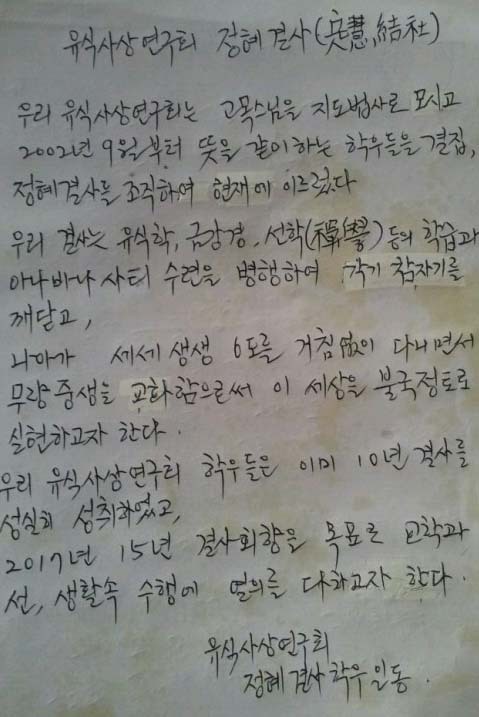 유식사상연구회 정혜결사(定慧結社)
우리 유식사상연구회는 고목스님을 지도법사로 모시고
2002년 9월부터 뜻을 같이하는 학우들을 결집,
정혜결사를 조직하여 현재에 이르렀다
우리 결사는 유식학, 금강경, 선학(禪學) 등의 학습과
아나바나 사티 수련을 병행하여 각기 참자기를
깨닫고,
나아가 세세생생 6도를 거침없이 다니면서
무량중생을 교화함으로써 이 세상을 불국정토로
실현하고자 한다.
우리 유식사상연구회 학우들은 이미 10년 결사를
성실히 성취하였고,
2017년 15년 결사회향을 목표로 교학과
선, 생활속 수행에 열의를 다하고자 한다.
유식사상연구회
정혜결사 학우 일동.